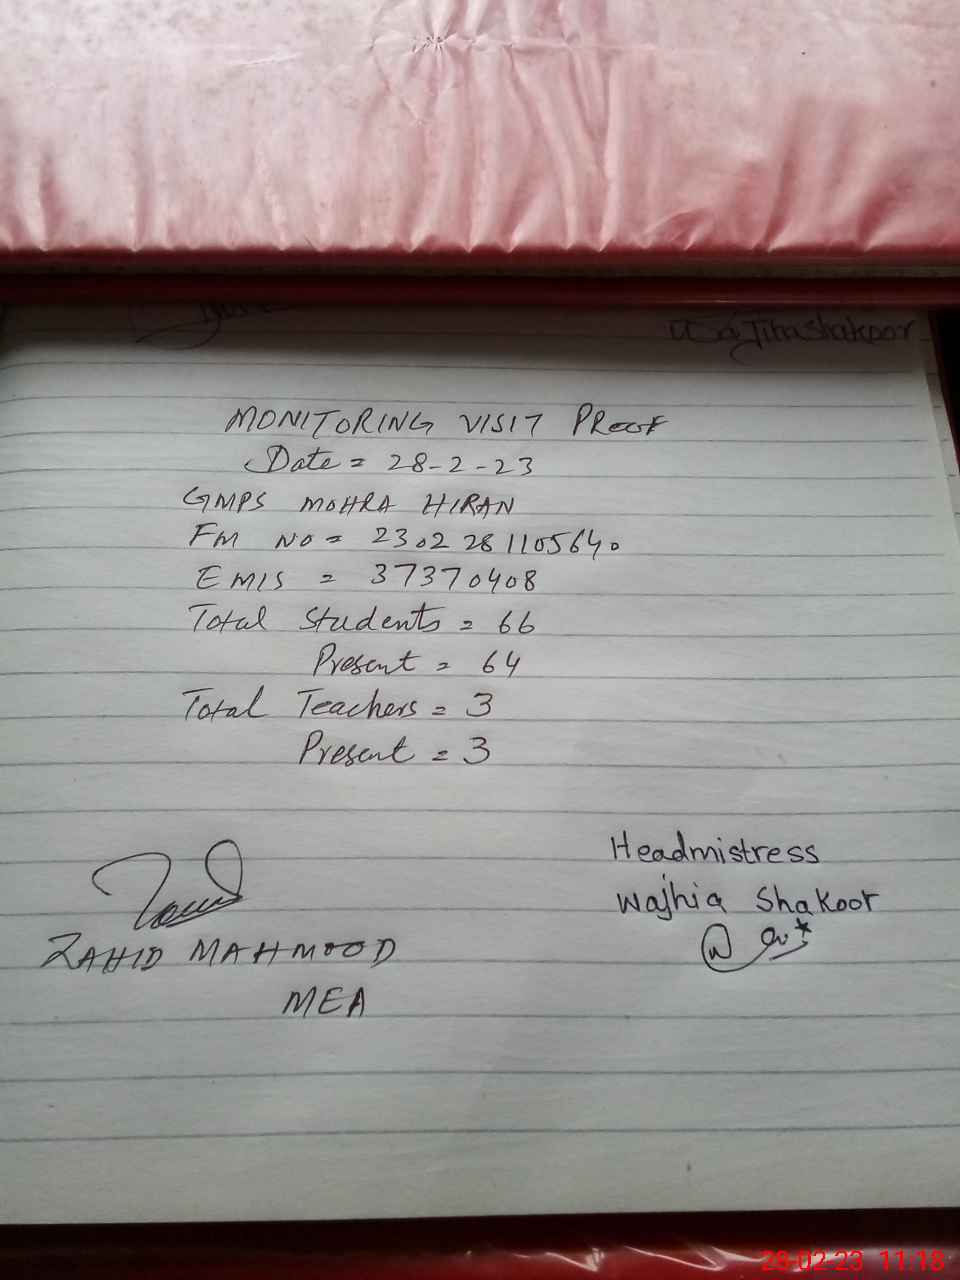 Shakoor
MONITORING VISIT PROOF
Date = 28-2-23
GMPS MOHRA HIRAN
FM NO = 2302281105640
EMIS = 37370408
Total Students = 66
Present = 64
Total Teachers = 3
Present = 3
Headmistress
Wajhia Shakoor
ZAHID MAHMOOD
MEA
28-02-23 11:18